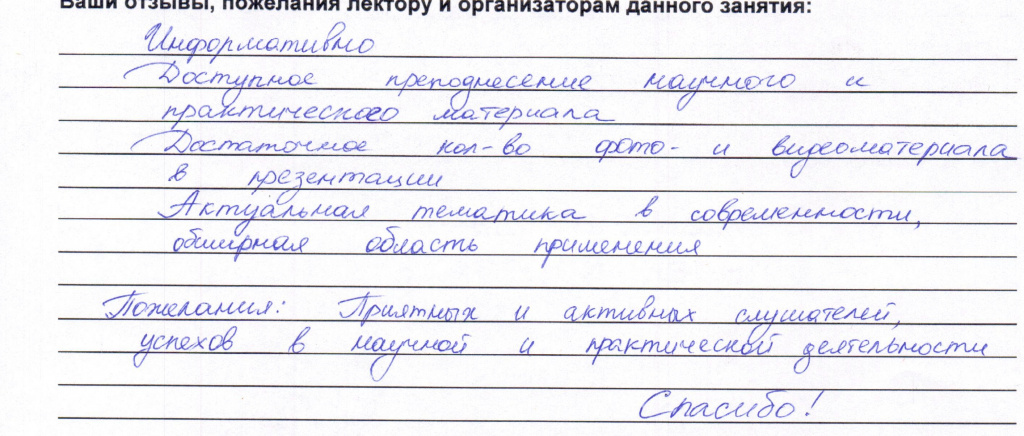 Ваши отзывы, пожелания лектору и организаторам данного занятия:
Информативно
Доступное преподнесение научного и
практического материала
Достаточное кол-во фото- и видеоматериала
в презентации
Актуальная тематика в современности,
обширная область применения
Пожелания: Приятных и активных слушателей,
успехов в научной и практической деятельности
Спасибо!